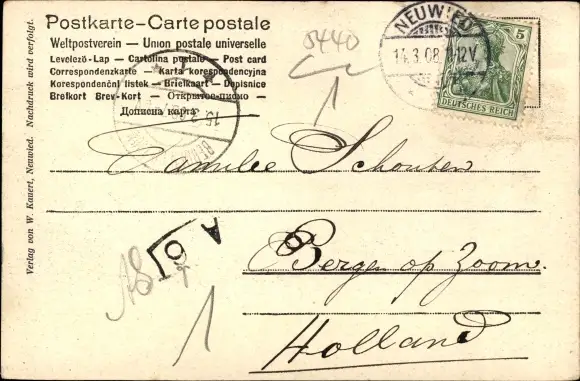 Postkarte–Carte postale
Weltpostverein – Union postale universelle
Levelező-Lap – Cartolina postale – Post card
Correspondenzkarte – Karta korespondencyjna
Korespondenční lístek – Briefkaart – Dopisnice
Brefkort Brev-Kort – Открытое письмо –
Дописна карта
Verlag von W. Kauert, Neuwied. Nachdruck wird verfolgt.
5440
NEUWIED
14.3.08. 11-12V.
5
DEUTSCHES REICH
Familie Schouten
A
6
Bergen op Zoom.
Holland
1
1